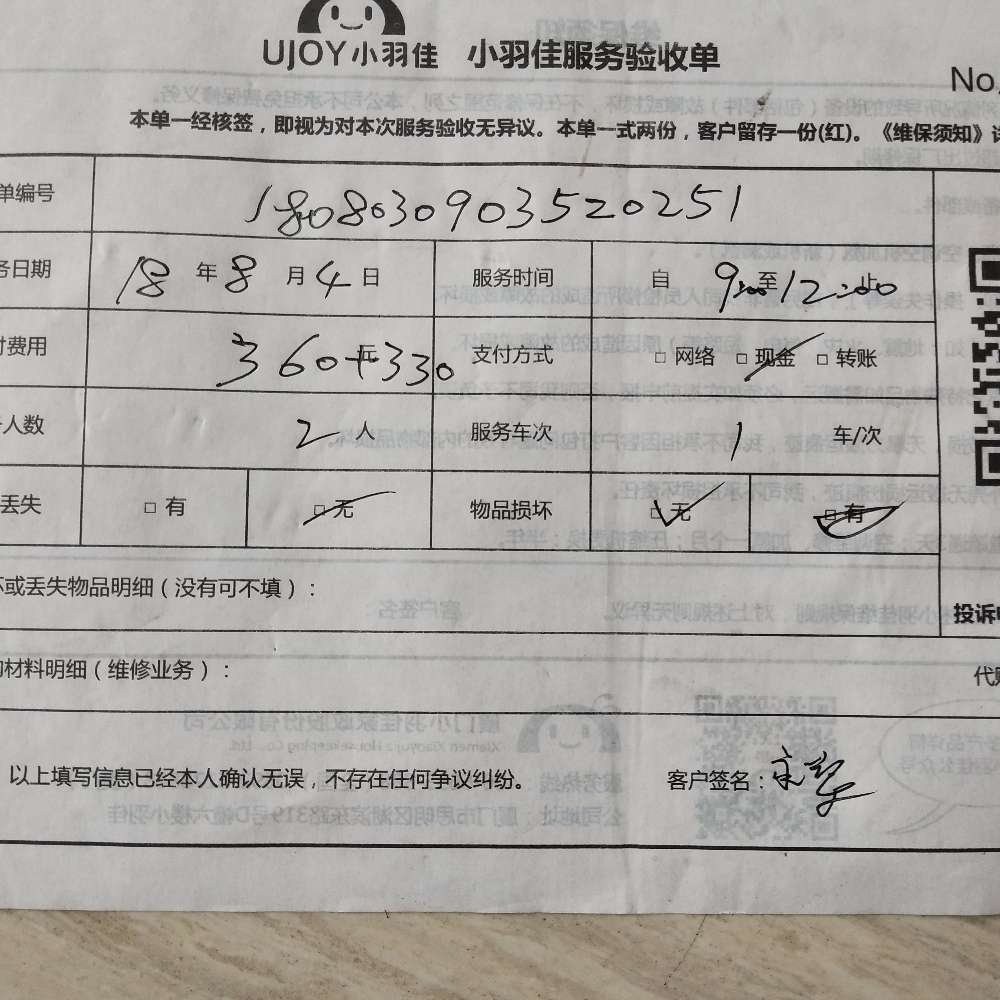 UJOY小羽佳 小羽佳服务验收单
No.
本单一经核签，即视为对本次服务验收无异议。本单一式两份，客户留存一份(红)。《维保须知》详
单编号 180803090352025​1
务日期 18 年 8 月 4 日 服务时间 自 9:00 至 12:00 止
付费用 360+330 元 支付方式 □ 网络 □ 现金 □ 转账
人数 2 人 服务车次 1 车/次
丢失 □ 有 □ 无 物品损坏 □ 无 □ 有
坏或丢失物品明细（没有可不填）：
投诉
材料明细（维修业务）：
代购
以上填写信息已经本人确认无误，不存在任何争议纠纷。 客户签名：